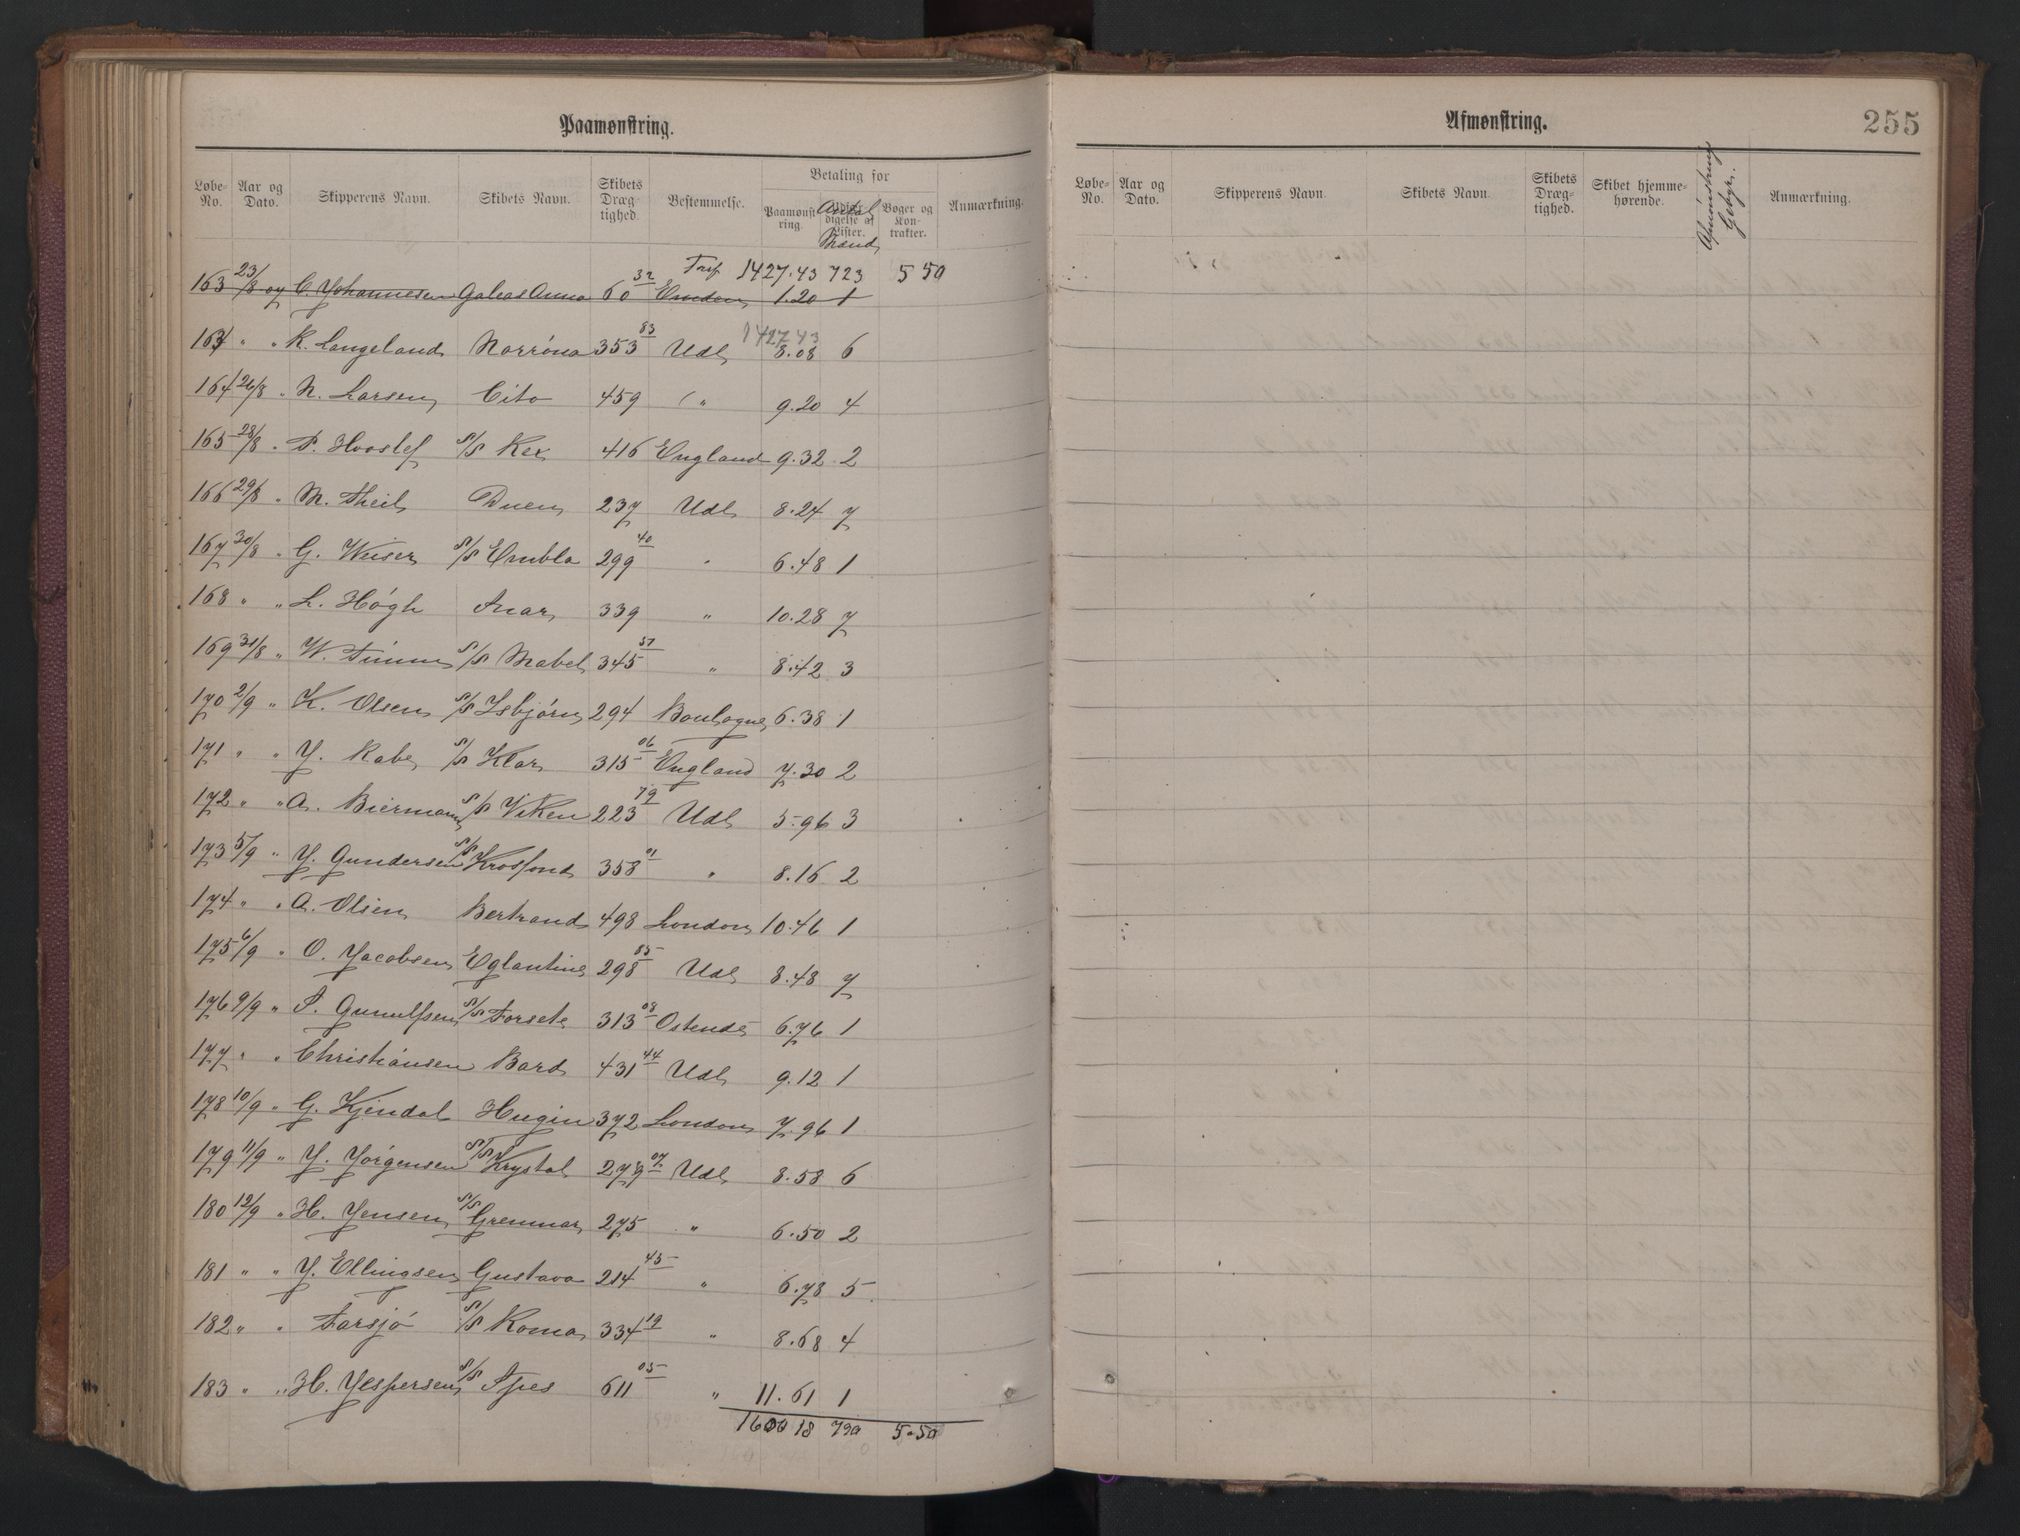 Paamønstring.
Løbe-No. Aar og Dato. Skipperens Navn. Skibets Navn. Skibets Dræg-tighed. Bestemmelse. Betaling for Paamønst-ring. Antal Mænd Bøger og Kon-trakter. Anmærkning.
Trsp. 1427.43 723 5 50
163 23/8 og C. Johannesen Galeas Anna 60 32 Emden 1.20 1
1427 43
163 " " K. Langeland Norröna 353 83 Udl 8.08 6
164 26/8 " N. Larsen Cito 459 " 9.20 4
165 28/8 " P. Hooslef S/S Rex 416 England 9.32 2
166 29/8 " M. Theil Duen 237 Udl 8.24 7
167 30/8 " G. Wiiser S/S Embla 299 40 " 6.48 1
168 " " L. Högh Anar 339 " 10.28 7
169 31/8 " W. Timm S/S Mabel 345 57 " 8.42 3
170 2/9 " K. Olsen S/S Isbjörn 294 Boulogne 6.38 1
171 " " J. Rabe S/S Klar 315 06 England 7.30 2
172 " " A. Biermann S/S Viken 223 79 Udl 5.96 3
173 5/9 " J. Gundersen S/S Krosfond 358 01 " 8.16 2
174 " " A. Olsen Bertrand 498 London 10.46 1
175 6/9 " O. Jacobsen Eglantine 298 85 Udl 8.48 7
176 9/9 " S. Gunulfsen S/S Forsete 313 08 Ostende 6.76 1
177 " " Christiansen Bard 431 44 Udl 9.12 1
178 10/9 " G. Kjendal Hugin 372 London 7.96 1
179 11/9 " J. Jörgensen S/S Krystal 279 07 Udl 8.58 6
180 12/9 " H. Jensen S/S Grenmar 275 " 6.50 2
181 " " J. Ellingsen Gustava 214 45 " 6.78 5
182 " " Farsjö S/S Roma 334 19 " 8.68 4
183 " " H. Jespersen S/S Spes 611 05 " 11.61 1
1600 18 790 5.50
Afmønstring.
255
Løbe-No. Aar og Dato. Skipperens Navn. Skibets Navn. Skibets Dræg-tighed. Skibet hjemme-hørende. Afmönstring Gebyr. Anmærkning.